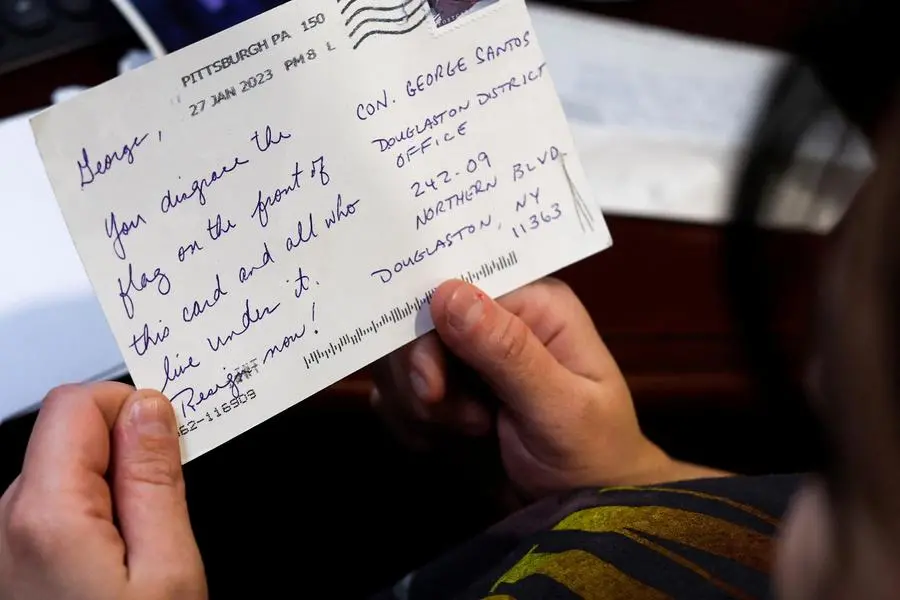 PITTSBURGH PA 150
27 JAN 2023 PM 8 L
George,
You disgrace the
flag on the front of
this card and all who
live under it.
Resign now!
CON. GEORGE SANTOS
DOUGLASTON DISTRICT
OFFICE
242-09
NORTHERN BLVD.
DOUGLASTON, NY
11363
62-116909